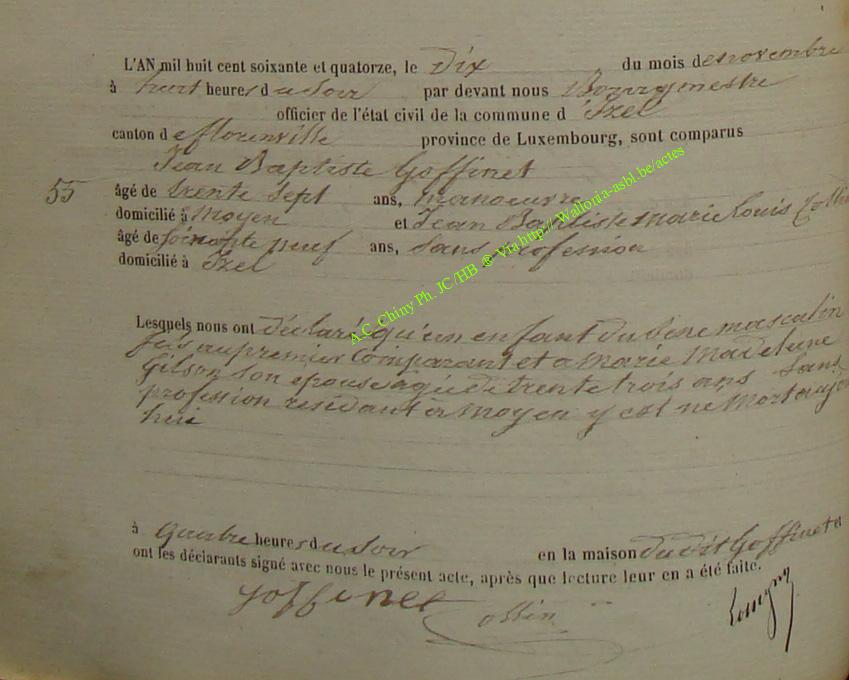 L'AN mil huit cent soixante et quatorze, le Dix du mois de novembre
à huit heures du Soir par devant nous Bourgmestre
officier de l'état civil de la commune d'Izel
canton de florenville province de Luxembourg, sont comparus
Jean Baptiste Goffinet
55 âgé de trente Sept ans, manoeuvre
domicilié à Moyen et Jean Baptiste Marie Louis
âgé de soixante neuf ans, sans profession
domicilié à Izel
A.C. Chiny Ph. JC/HB @ Via http://Wallonia-asbl.be/actes
Lesquels nous ont déclaré qu'un enfant du Sexe masculin
fils au premier Comparant et a Marie Madeleine
Gilson Son epouse agée de trente trois ans Sans
profession residant à Moyen y est né Mort aujour
hui
à quatre heures du Soir en la maison du dit Goffinet et
ont les déclarants signé avec nous le présent acte, après que lecture leur en a été faite.
Goffinet